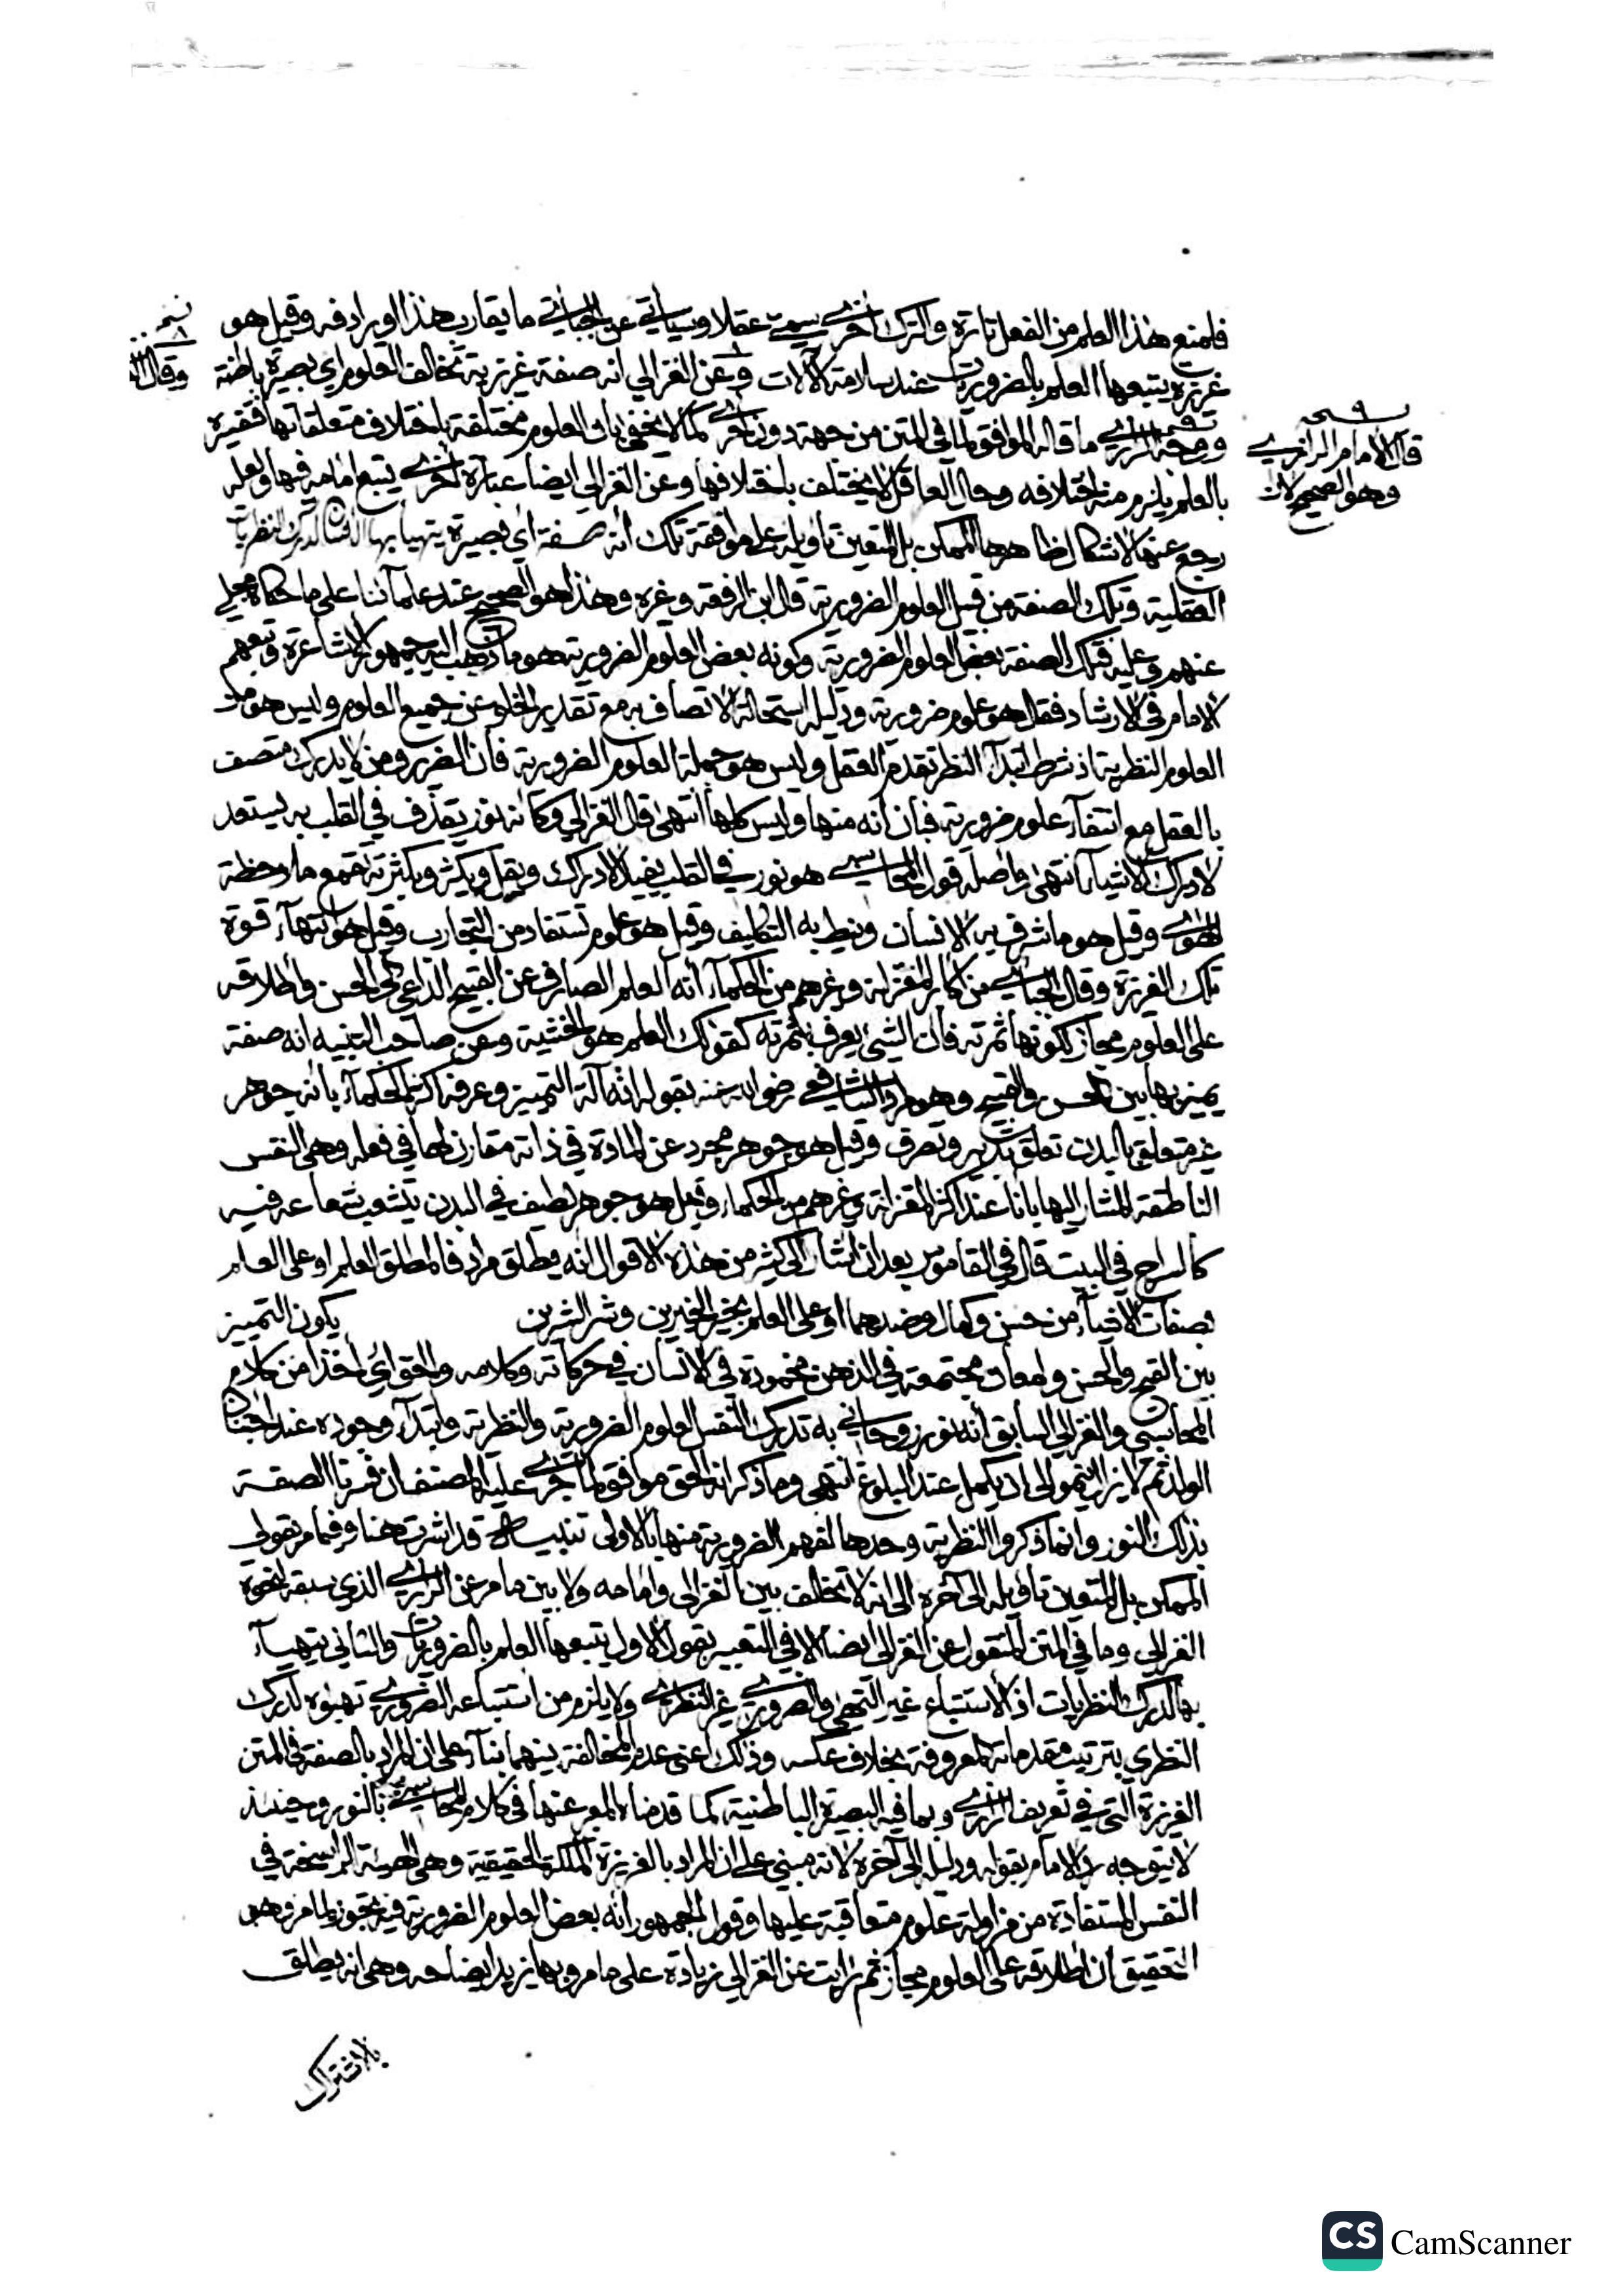 فلمنع هذا العلم من الفعل تارة والترك أخرى سمي عقلا وسيأتي عن الجبائي ما يقارب هذا او يرادفه وقيل هو
غريزة يتبعها العلم بالضروريات عند سلامة الآلات وعن الغزالي انه صفة غريزية تخالف العلوم اي بصيرة باطنة
نسخة
وقال
نسخة
قال الامام الرازي
وهو الصحيح لان
ما قاله الموافق لما في المتن من جهة دون أخرى كما لا يخفى بأن العلوم مختلفة باختلاف متعلقاتها
بالعلم يلزم منه اختلافه وحال العاقل لا يختلف باختلافها وعن الغزالي ايضا عبارة أخرى يتبع امامه فيها ولعله
رجع عنها لاشكال ظاهرها الممكن بل المتعين تأويله على موافقة تلك أنه صفة أي بصيرة يتهيأ بها الانسان لدرك النظريات
العقلية وتلك الصفة من قبيل العلوم الضرورية قال ابن الرفعة وغيره وهذا هو الصحيح عند علمآئنا على ما حكاه مجلي
عنهم وعليه فتلك الصفة بعض العلوم الضرورية وكونه بعض العلوم الضرورية هو ما ذهب اليه جمهور الاشاعرة وتبعهم
الامام في الارشاد فقال هو علوم ضرورية ودليله استحالة الاتصاف به مع تقدير الخلو عن جميع العلوم وليس هو من
العلوم النظرية اذ شرط ابتدآء النظر تقدم العقل وليس هو جملة العلوم الضرورية فان الضرير ومن لا يدرك متصف
بالعقل مع انتفآء علوم ضرورية فبان أنه منها وليس كلها انتهى قال الغزالي وكأنه نور يقذف في القلب به يستعد
لادراك الاشيآء انتهى وأصله قول المحاسبي هو نور في القلب يفيد الادراك ويقل ويكثر وبكثرته تقمع ملاحظة
الهوى وقيل هو ما شرف به الانسان ونيط به التكليف وقيل هو علوم تستفاد من التجارب وقيل هو انتهآء قوة
تلك الغريزة وقال الجبائي من أكابر المعتزلة وغيرهم من الحكمآء أنه العلم الصارف عن القبيح الداعي الى الحسن واطلاقه
على العلوم مجاز لكونها ثمرته فان الشيء يعرف بثمرته كقولك العلم هو الخشية وعن صاحب التنبيه انه صفة
يميز بها بين الحسن والقبيح وهو مراد الشافعي رضي الله عنه بقوله انه آلة التمييز وعرفه اكثر الحكمآء بأنه جوهر
غير متعلق بالبدن تعلق تدبير وتصرف وقيل هو جوهر مجرد عن المادة في ذاته مقارن لها في فعله وهي النفس
الناطقة المشار اليها بأنا عند اكثر المعتزلة وغيرهم من الحكمآء وقيل هو جوهر لطيف في البدن يتشعب شعاعه فيه
كالسراج في البيت قال في القاموس بعد ان اشار الى كثير من هذه الاقوال انه يطلق مرادفا لمطلق العلم او على العلم
بصفات الاشيآء من حسن وكمال وضدهما او على العلم بخير الخيرين وشر الشرين يكون التمييز
بين القبيح والحسن ولمعان مجتمعة في الذهن محمودة في الانسان في حركاته وكلامه والحق أي اخذا من كلام
المحاسبي والغزالي السابق أنه نور روحاني به تدرك النفس العلوم الضرورية والنظرية وابتدآء وجوده عند اجتنان
الولد ثم لا يزال ينمو الى ان يكمل عند البلوغ انتهى وما ذكر انه الحق موافق لما جرى عليه المصنف ان فسرنا الصفة
بذلك النور وانما ذكروا النظرية وحدها لفهم الضرورية منها بالاولى تنبيه قد اشرت هنا وفيما مر بقولي
الممكن بل المتعين تأويله الى آخره الى انه لا تخالف بين الغزالي وامامه ولا بين ما مر عن الرازي الذي سبقه لنحوه
الغزالي وما في المتن المنقول عن الغزالي ايضا الا في التعبير بقول الاول يتبعها العلم بالضروريات والثاني يتهيأ
بها لدرك النظريات اذ الاستتباع غير التهيئ والضروري غير النظري ولا يلزم من استتباعه الضروري تهيؤه لدرك
النظري بترتيب مقدماته المعروفة بخلاف عكسه وذلك أعني عدم المخالفة بينهما بنآء على ان المراد بالصفة في المتن
الغريزة التي في تعريف الرازي وبما فيه البصيرة الباطنية كما قدمناه المعبر عنها في كلام المحاسبي بالنور وحينئذ
لا يتوجه رد الامام بقوله ودليله الى آخره لانه مبني على ان المراد بالغريزة الملكة الحقيقية وهي الهيئة الراسخة في
النفس المستفادة من مزاولة علوم متعاقبة عليها وقول الجمهور انه بعض العلوم الضرورية فيه تجوز لما مر وهو
التحقيق ان اطلاقه على العلوم مجاز ثم رأيت عن الغزالي زيادة على ما مر وبها يزيد ايضاحه وهي انه يطلق
بالاشتراك
CS CamScanner